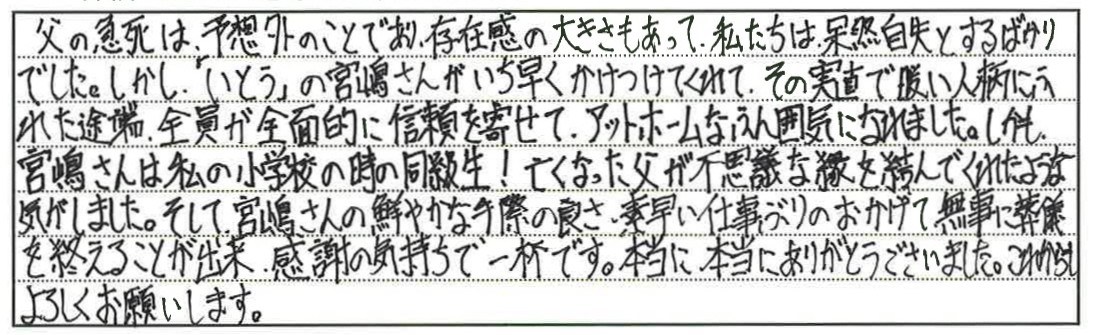 父の急死は、予想外のことであり、存在感の大きさもあって、私たちは、呆然自失とするばかり
でした。しかし、「いとう」の宮嶋さんがいち早くかけつけてくれて、その実直で暖い人柄にふ
れた途端、全員が全面的に信頼を寄せて、アットホームなふん囲気になれました。しかも、
宮嶋さんは私の小学校の時の同級生！亡くなった父が不思議な縁を結んでくれたような
気がしました。そして、宮嶋さんの鮮やかな手際の良さ、素早い仕事ぶりのおかげで、無事に葬儀
を終えることが出来、感謝の気持ちで一杯です。本当に、本当にありがとうございました。これからも
よろしくお願いします。